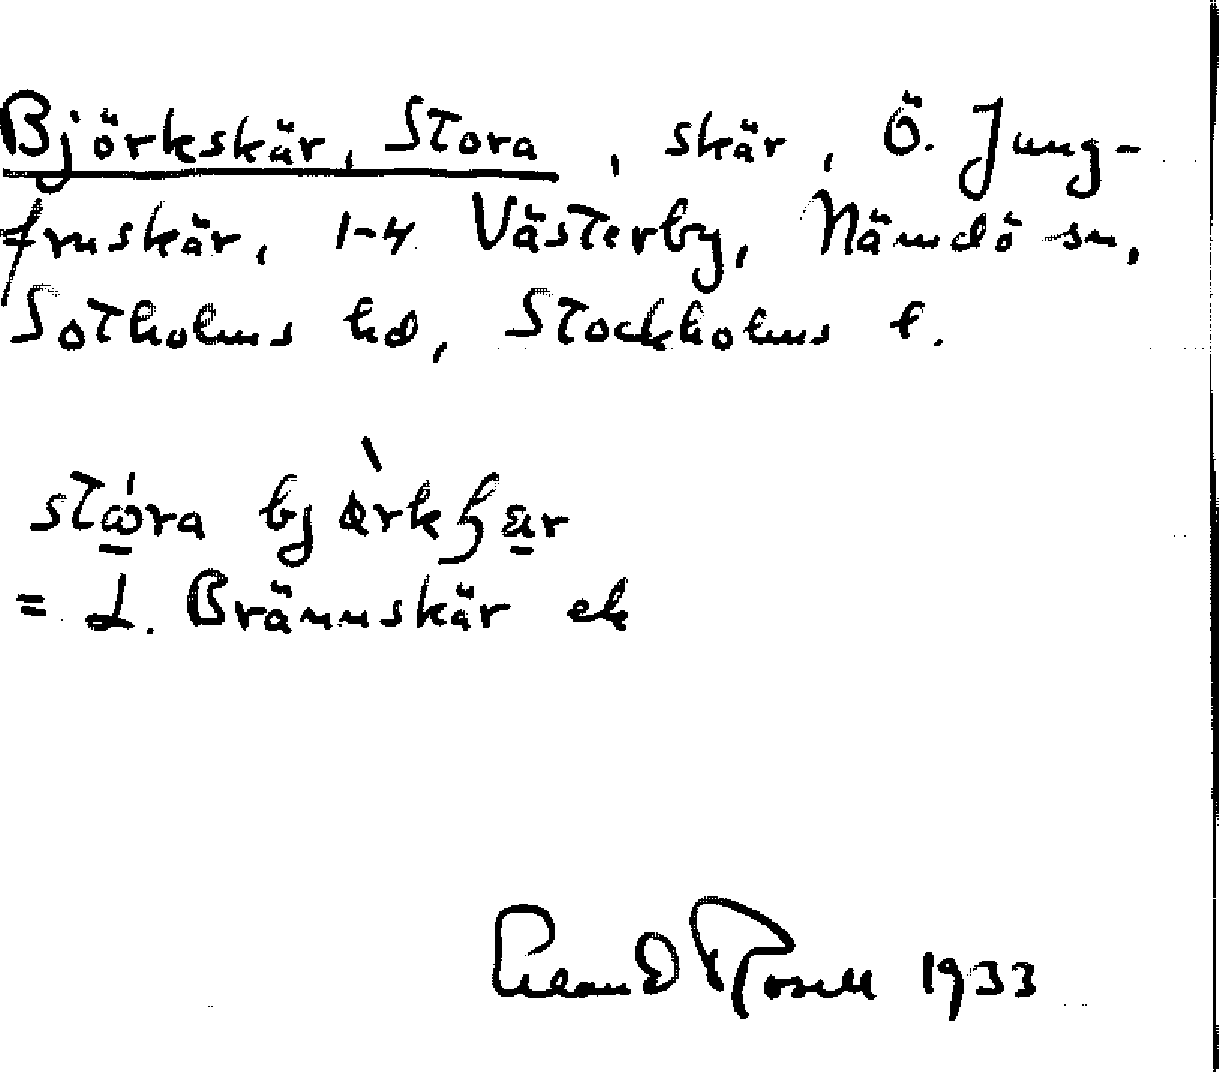 Björkskär, Stora, skär, Ö. Jung-
fruskär, 1-4 Västerby, Nämdö sn,
Sotholms hd, Stockholms l.
stώra
= L. Brännskär ek
Rosell 1933